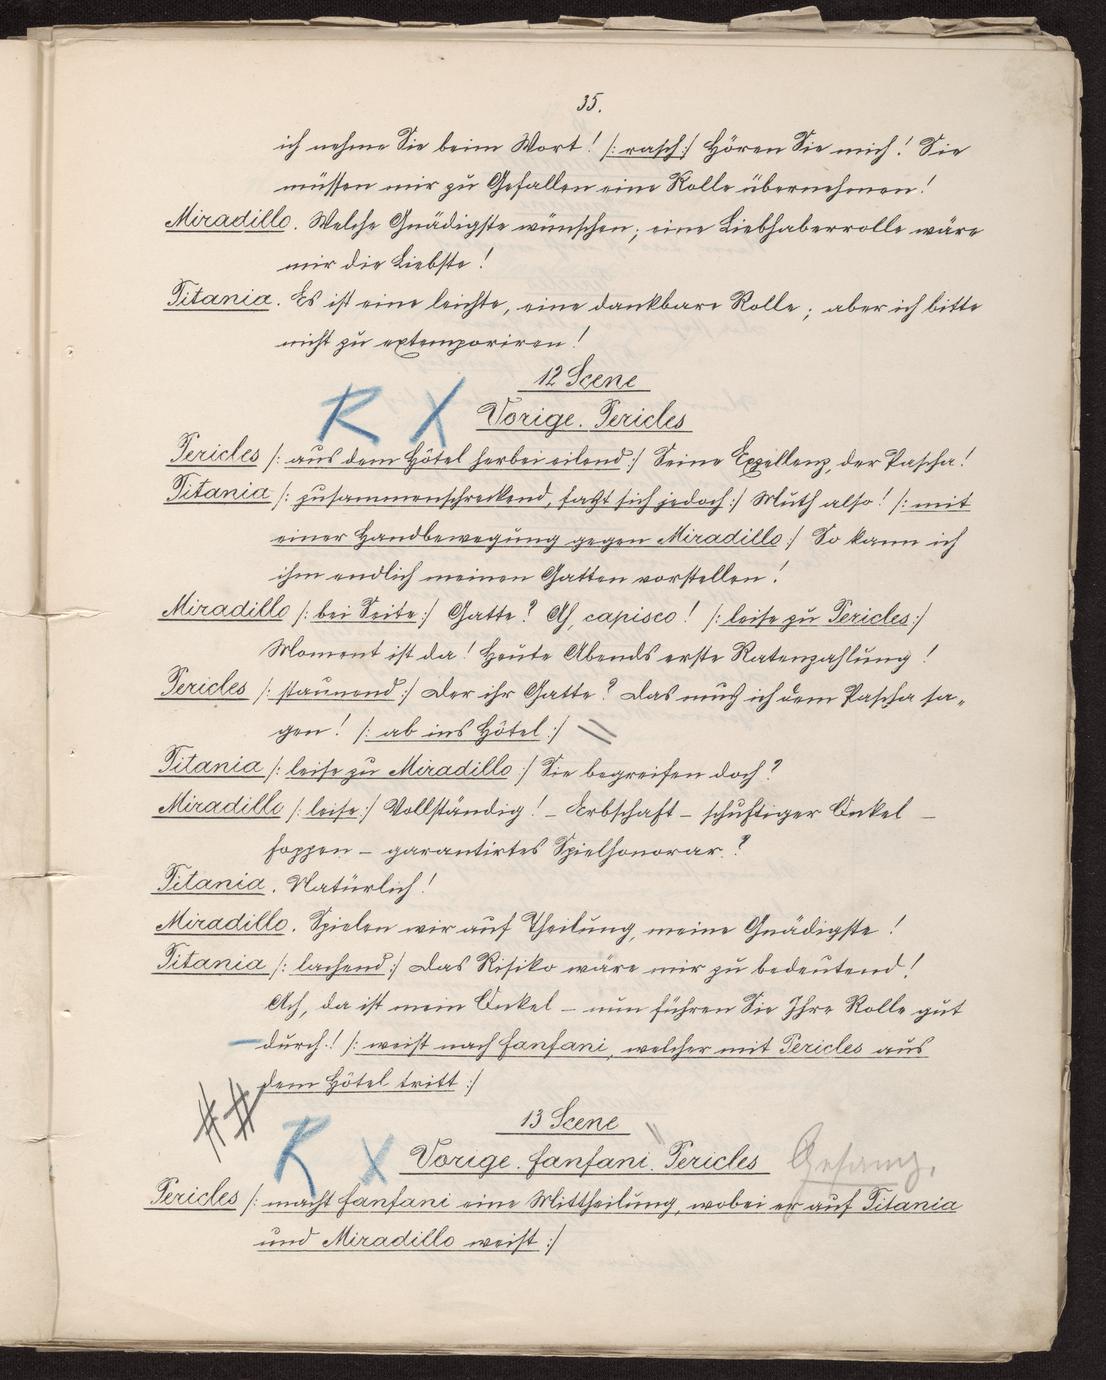 35.
ich nehme Sie beim Wort! /: rasch :/ Hören Sie mich! Sie
müssen mir zu Gefallen eine Rolle übernehmen!
Miradillo. Welche Gnädigste wünschen; eine Liebhaberrolle wäre
mir die Liebste!
Titania. Es ist eine leichte, eine dankbare Rolle; aber ich bitte
nicht zu extemporiren!
12 Scene
R X Vorige. Pericles
Pericles /: aus dem Hôtel herbei eilend :/ Seine Exzellenz, der Pascha!
Titania /: zusammenschreckend, faßt sich jedoch :/ Muth also! /: mit
einer Handbewegung gegen Miradillo :/ So kann ich
ihm endlich meinen Gatten vorstellen!
Miradillo /: bei Seite :/ Gatte? Ah, capisco! /: leise zu Pericles :/
Moment ist da! Heute Abends erste Ratenzahlung!
Pericles /: staunend :/ Der ihr Gatte? Das muß ich dem Pascha sa-
gen! /: ab ins Hôtel :/
Titania /: leise zu Miradillo :/ Sie begreifen doch?
Miradillo /: leise :/ Vollständig! – Erbschaft – schuftiger Onkel –
foppen – garantirtes Spielhonorar?
Titania. Natürlich!
Miradillo. Spielen wir auf Theilung, meine Gnädigste!
Titania /: lachend :/ Das Risiko wäre mir zu bedeutend!
Ach, da ist mein Onkel – nun führen Sie Ihre Rolle gut
durch! /: weist nach Fanfani, welcher mit Pericles aus
dem Hôtel tritt :/
##
13 Scene
R X Vorige. Fanfani. Pericles Gesang.
Pericles /: macht Fanfani eine Mittheilung, wobei er auf Titania
und Miradillo weist :/